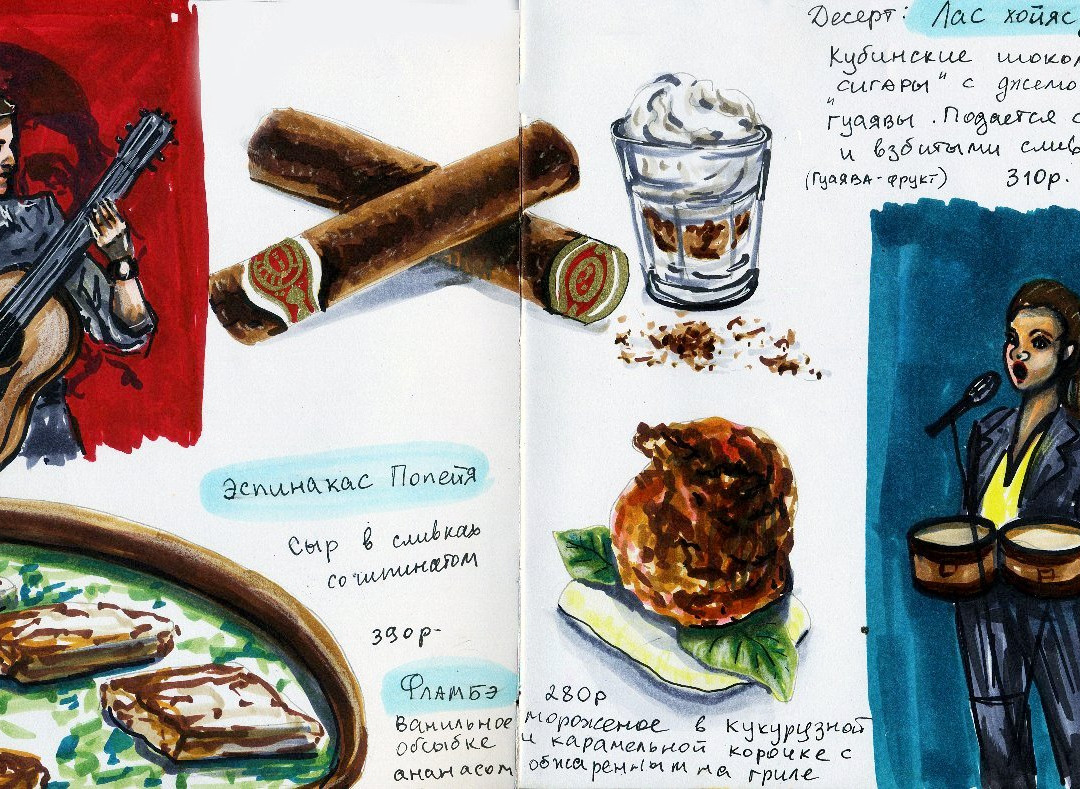 Десерт: Лас хойяс
Кубинские шокол
"сигары" с джемо
гуаявы. Подается с
и взбитыми слив
(гуаява-фрукт) 310р.
Эспинакас Попейя
Сыр в сливках
со шпинатом
390р-
Фламбэ 280р
Ванильное мороженое в кукурузной
обсыбке и карамельной корочке с
ананасом обжаренным на гриле